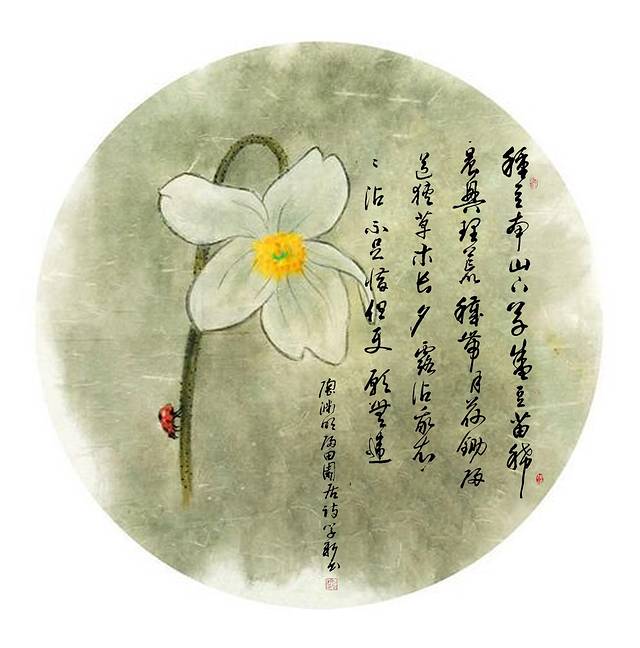 種豆南山下草盛豆苗稀
晨興理荒穢帶月荷鋤歸
道狹草木長夕露沾我衣
〻沾不足惜但使願無違
陶淵明歸田園居詩